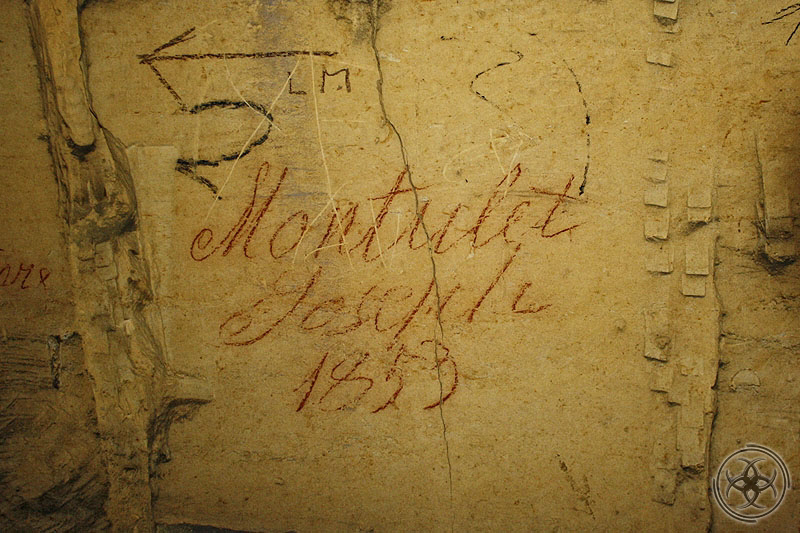 LM
Montulet
Joseph
1853